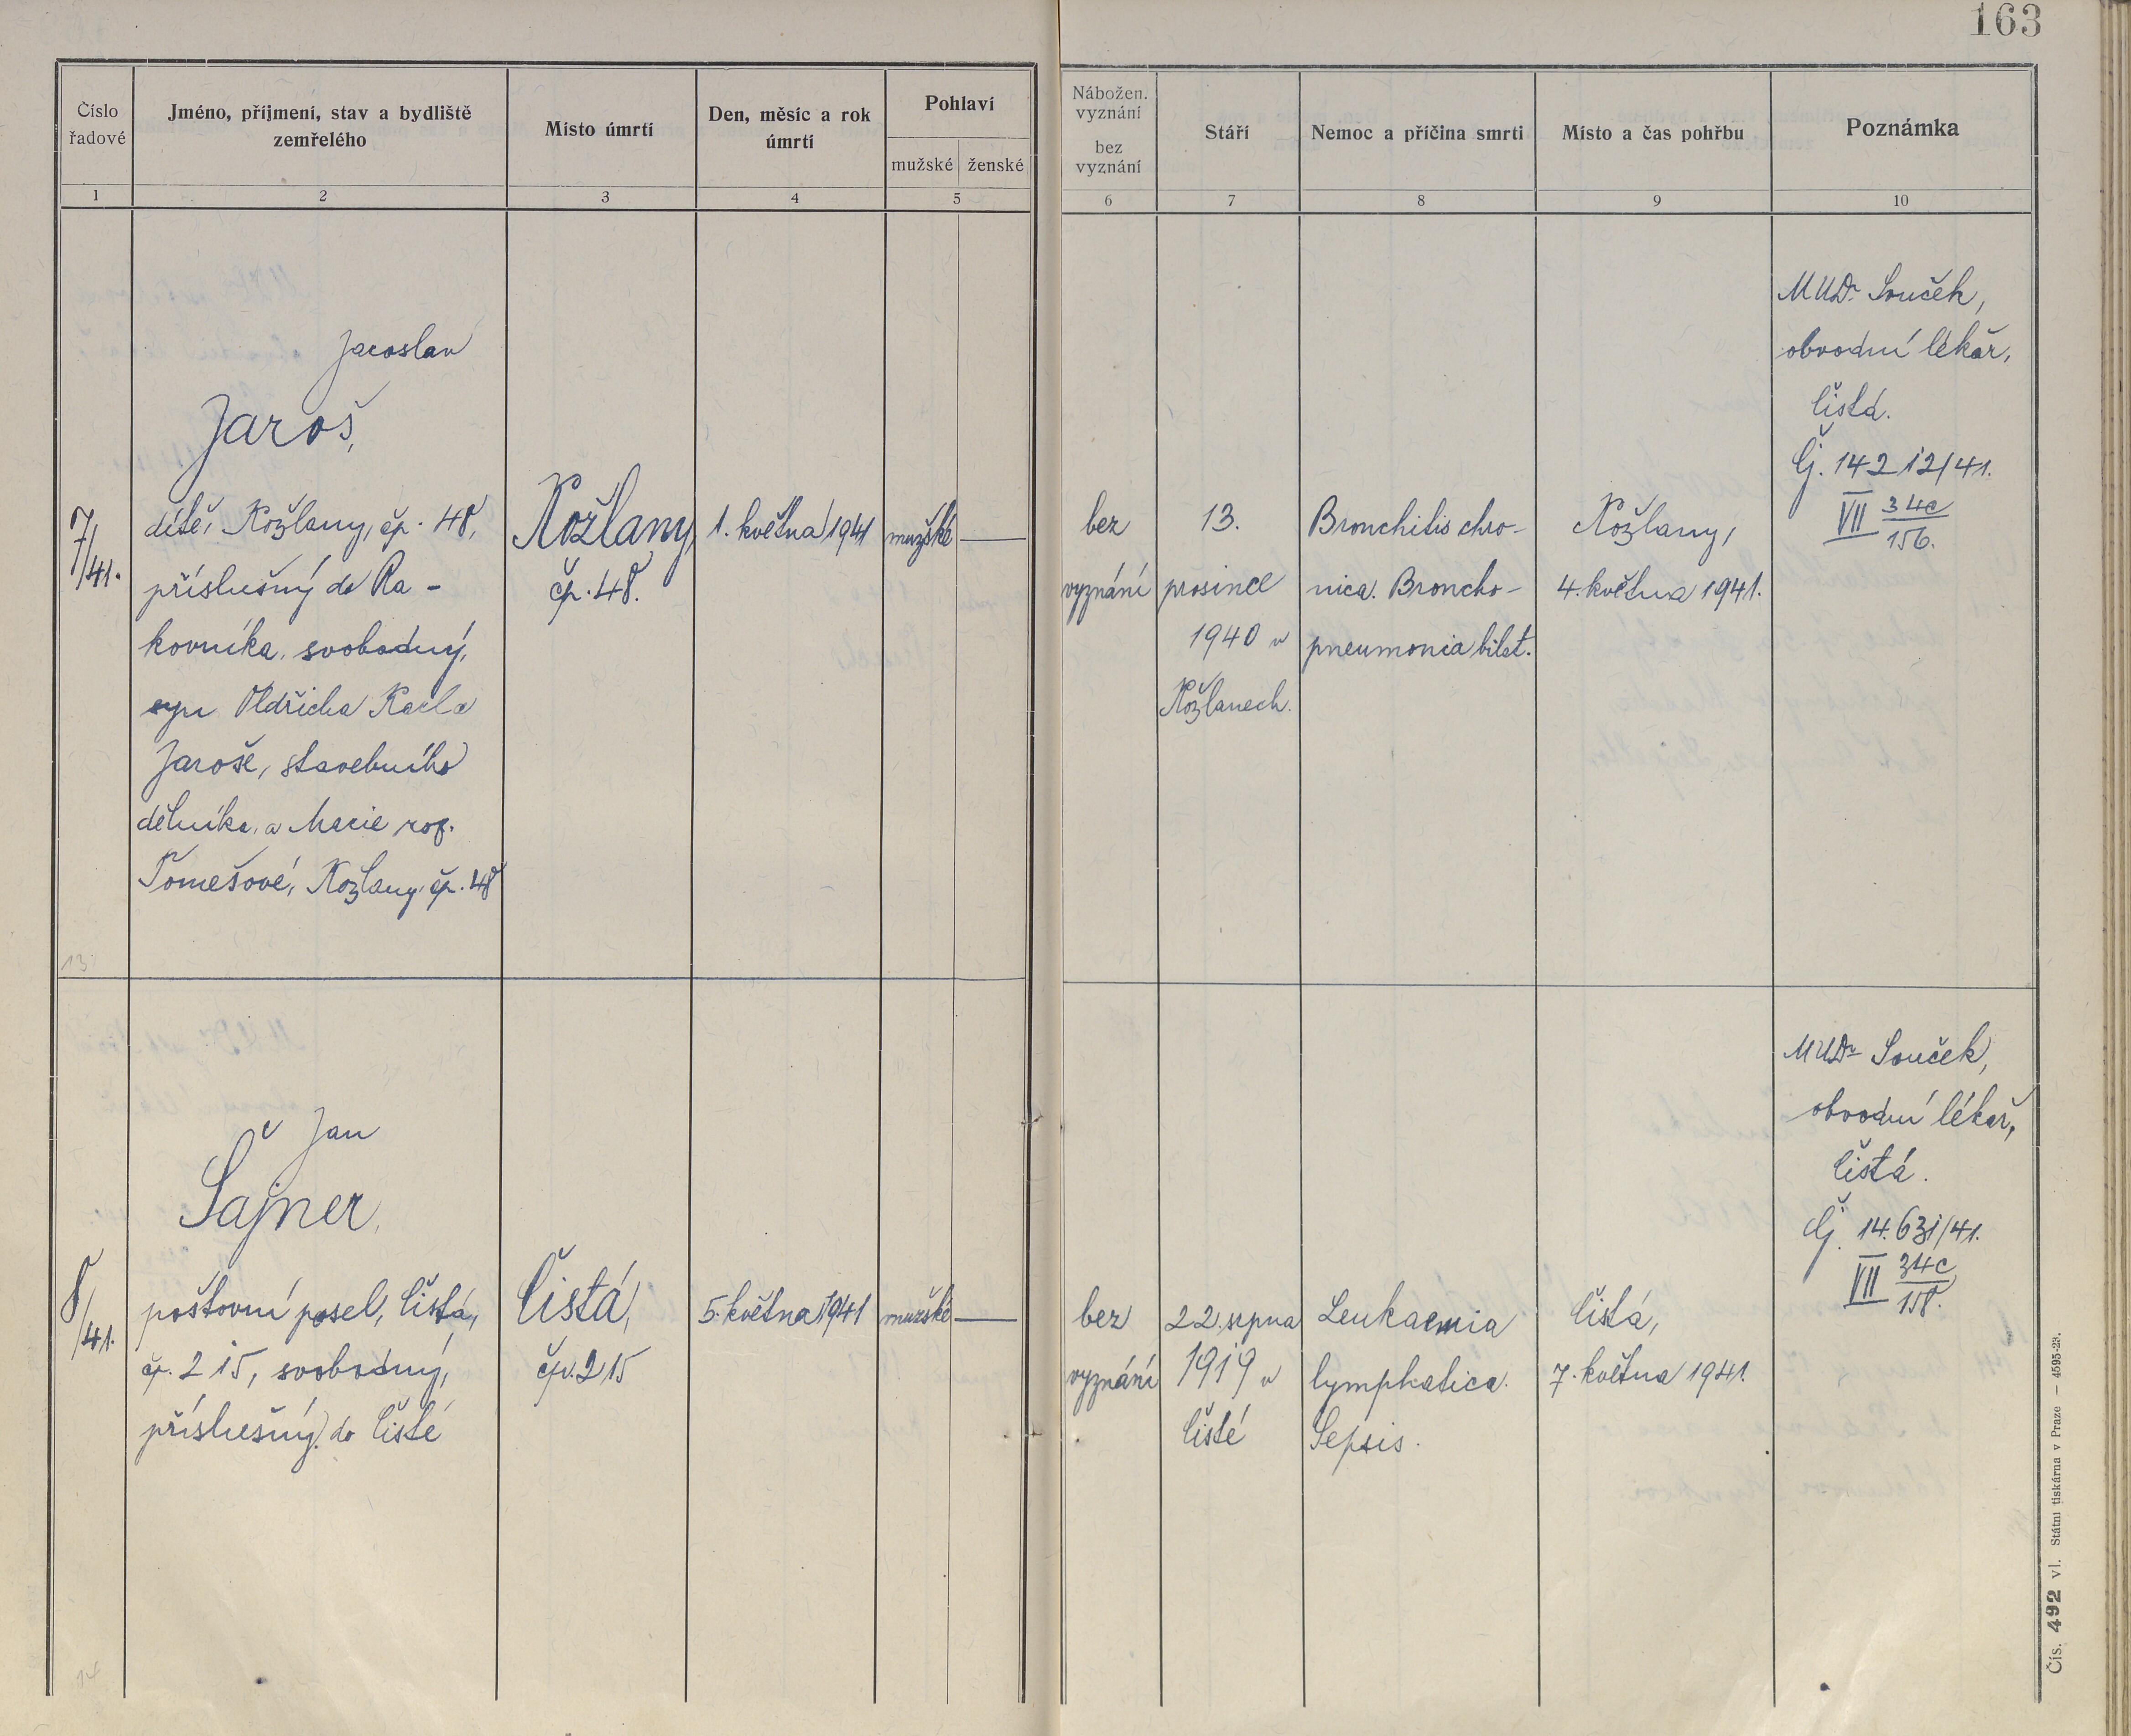 163
Číslo
řadové
Jméno, příjmení, stav a bydliště
zemřelého
Místo úmrtí
Den, měsíc a rok
úmrtí
Pohlaví
mužské ženské
Nábožen.
vyznání
bez
vyznání
Stáří
Nemoc a příčina smrti
Místo a čas pohřbu
Poznámka
1 2 3 4 5 6 7 8 9 10
7/41.
Jaroslav
Jaroš,
dítě, Kožlany, čp. 48,
příslušný do Ra-
kovníka, svobodný,
syn Oldřicha Karla
Jaroše, stavebního
dělníka, a Marie roz.
Tomešové, Kožlany, čp. 48
Kožlany,
čp. 48.
1. května 1941
mužské
bez
vyznání
13.
prosince
1940 v
Kožlanech.
Bronchitis chro-
nica. Broncho-
pneumonia bilat.
Kožlany,
4. května 1941.
MUDr. Souček,
obvodní lékař,
Čistá.
Čj. 14212/41.
VII 34c
156.
13
8/41.
Jan
Šajner,
poštovní posel, Čistá,
čp. 215, svobodný,
příslušný do Čisté
Čistá,
čp. 215
5. května 1941
mužské
bez
vyznání
22. srpna
1919 v
Čisté
Leukaemia
lymphatica.
Sepsis.
Čistá,
7. května 1941.
MUDr Souček,
obvodní lékař,
Čistá.
Čj. 14.631/41.
VII 34c
158.
14
Čís. 492 vl. Státní tiskárna v Praze — 4595-23.